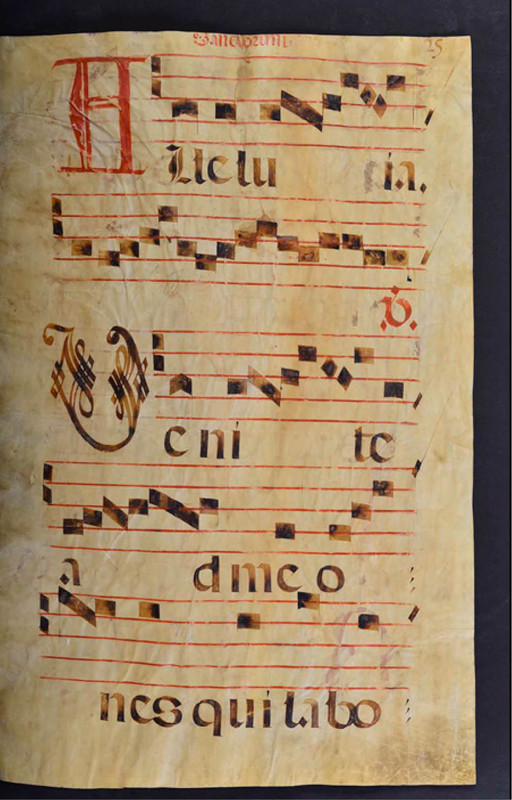 Sanctorum. 25
ALLelu ia.
℣.
Veni te
a dme o
nes qui labo